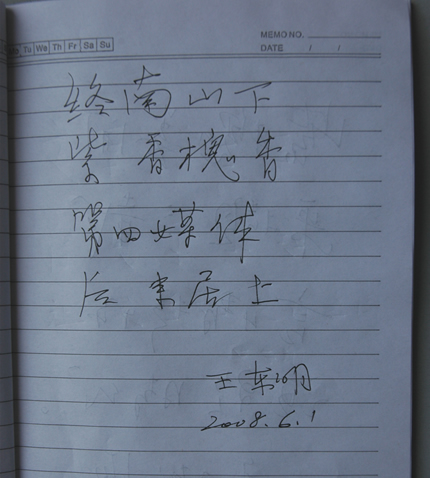 MEMO NO.
Mo Tu We Th Fr Sa Su
DATE / /
终南山下
紫香槐香
第四媒体
后来居上
王东明
2008.6.1